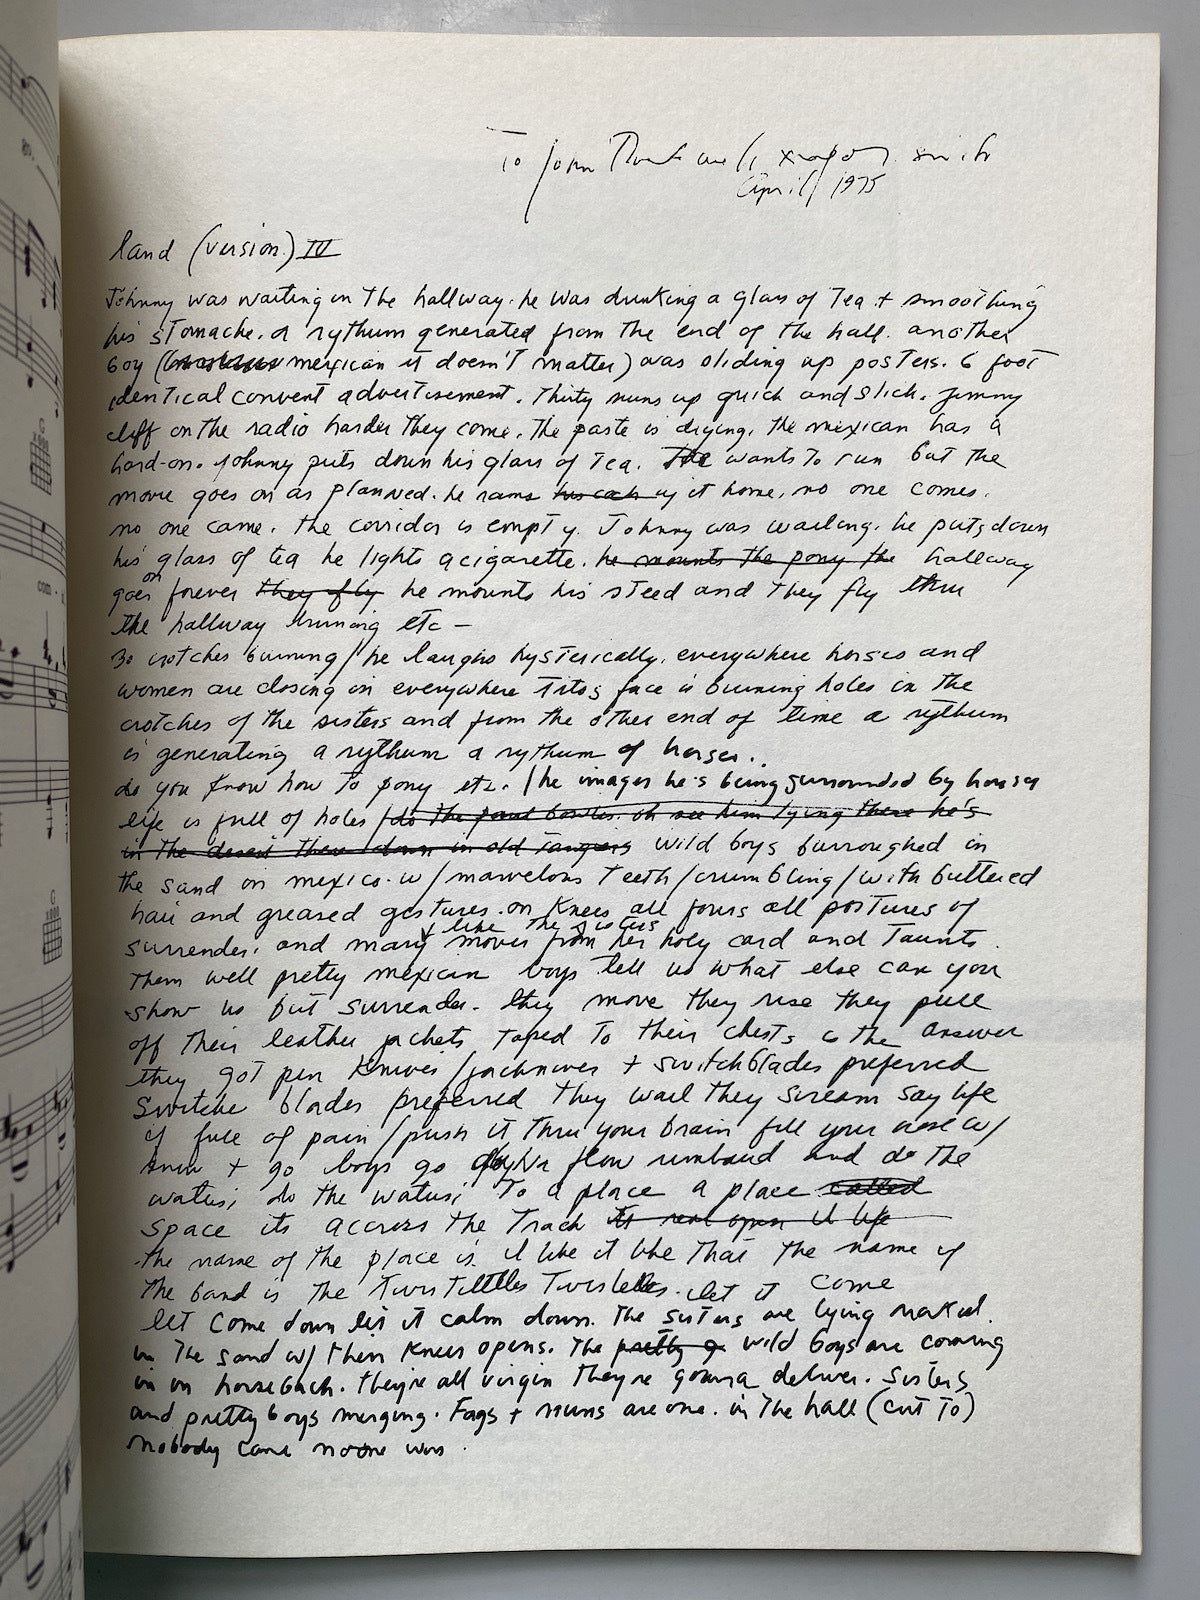 To John
April 1975
land (version) IV
Johnny was waiting in the hallway. he was drinking a glass of Tea + smoothing
his stomache. a rythum generated from the end of the hall. another
boy ( mexican it doesn't matter) was sliding up posters. 6 foot
identical convent advertisement. Thirty nuns up quick and slick. Jimmy
cliff on the radio harder they come. the paste is drying. the mexican has a
hard-on. Johnny puts down his glass of Tea. wants to run but the
movie goes on as planned. he rams his cock it home. no one comes.
no one came. the corridor is empty. Johnny was wailing. he puts down
his glass of tea he lights a cigarette. he mounts the pony the hallway
goes on forever they fly he mounts his steed and they fly thru
the hallway etc —
30 crotches burning / he laughs hysterically. everywhere horses and
women are closing in everywhere Titos face is burning holes in the
crotches of the sisters and from the other end of time a rythum
is generating a rythum a rythum of horses..
do you know how to pony etc. / he images he's being surrounded by horses
life is full of holes / do the paul bowles. oh see him lying there he's
in the desert there down in old Tangiers wild boys burroughed in
the sand on mexico. w/ marvelous teeth / crumbling / with buttered
hair and greased gestures. on knees all fours all postures of
surrender. and mary like the sisters moves from her holy card and Taunts
them well pretty mexican boys tell us what else can you
show us but surrender. they move they rise they pull
off their leather jackets taped to their chests is the answer
they got pen knives / jacknives + switchblades preferred
Switche blades preferred they wail they scream say life
if full of pain / push it thru your brain fill your nose w/
snow + go boys go flow rimbaud and do the
watusi do the watusi To a place a place called
space its accross the Track its real open it life
the name of the place is. I like it like that the name of
the band is the Twistelettes. let it come
let come down let it calm down. The sisters are lying naked
in the sand w/ their knees opens. The pretty wild boys are coming
in on horseback. they're all virgin they're gonna deliver. Sisters
and pretty boys merging. Fags + nuns are one. in the hall (cut To)
nobody came noone was